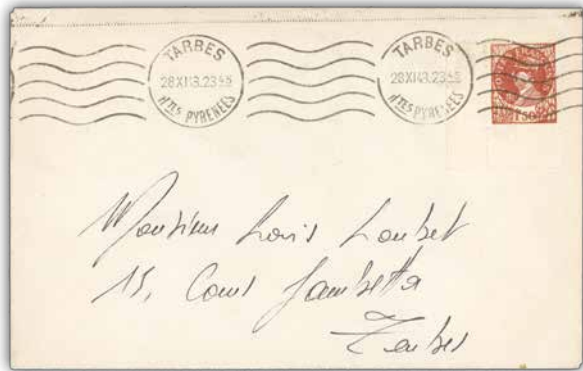 TARBES
28 XII 43. 23 45
Htes PYRENEES
TARBES
28 XII 43. 23 45
Htes PYRENEES
1F50
Monsieur Louis Loubet
15, Cours Gambetta
Tarbes